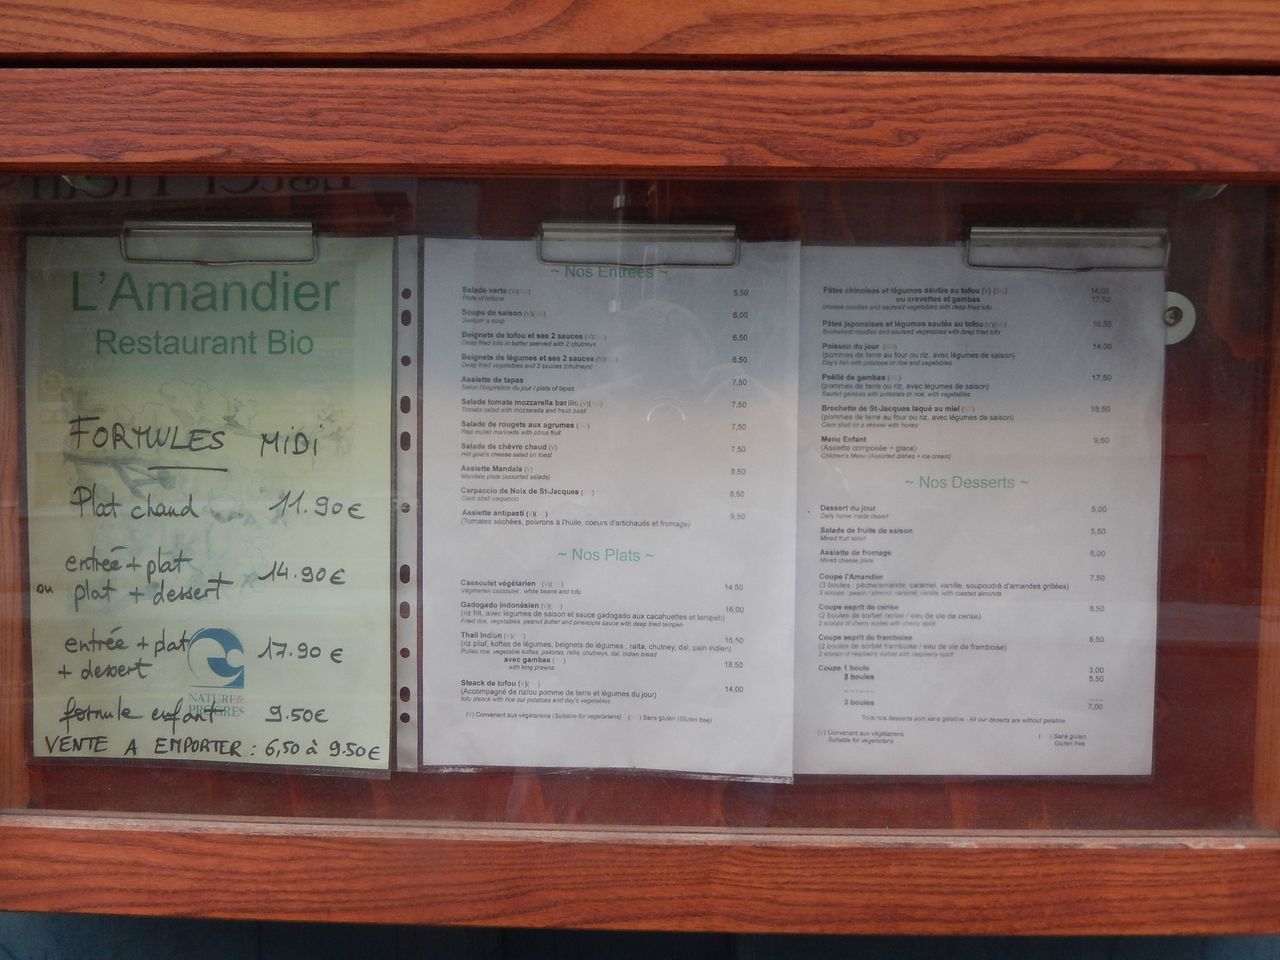 L'Amandier
Restaurant Bio
FORMULES MIDI
Plat chaud 11.90€
entrée + plat
ou plat + dessert 14.90€
entrée + plat
+ dessert 17.90€
NATURE &
PROGRES
formule enfant 9.50€
VENTE A EMPORTER : 6,50 à 9.50€
~ Nos Entrées ~
Salade verte (V) 5,50
Plate of lettuce
Soupe de saison (V) 6,00
Season's soup
Beignets de tofou et ses 2 sauces (V) 6,50
Deep fried tofu in batter served with 2 chutneys
Beignets de légumes et ses 2 sauces (V) 6,50
Deep fried vegetables and 2 sauces (chutneys)
Assiette de tapas 7,50
Selon l'inspiration du jour / plate of tapas
Salade tomate mozzarella basilic (V) 7,50
Tomato salad with mozzarella and fresh basil
Salade de rougets aux agrumes 7,50
Red mullet marinade with citrus fruit
Salade de chèvre chaud (V) 7,50
Hot goat's cheese salad on toast
Assiette Mandala (V) 8,50
Mandala plate (assorted salads)
Carpaccio de Noix de St-Jacques 8,50
Clam shell carpaccio
Assiette antipasti (V) 9,50
(Tomates séchées, poivrons à l'huile, coeurs d'artichauds et fromage)
~ Nos Plats ~
Cassoulet végétarien (V) 14,50
Végétarian cassoulet , white beans and tofu
Gadogado indonésien (V) 16,00
(riz frit, avec légumes de saison et sauce gadogado aux cacahuetes et tempeh)
Fried rice, vegetables, peanut butter and pineapple sauce with deep fried tempeh
Thali Indien (V) 16,50
(riz pilaf, koftas de légumes, beignets de légumes , raïta, chutney, dal, pain indien)
Pullao rice, vegetable koftas, pakoras, raita, chutneys, dal, indian bread
avec gambas 18,50
with king prawns
Steack de tofou (V) 14,00
(Accompagné de riz/ou pomme de terre et légumes du jour)
tofu steack with rice our potatoes and day's vegetables
(V) Convenant aux végétariens (Suitable for vegetarians) ( ) Sans gluten (Gluten free)
Pâtes chinoises et légumes sautés au tofou (V) 14,00
ou crevettes et gambas 17,50
chinese noodles and sauteed vegetables with deep fried tofu
Pâtes japonaises et légumas sautés au tofou (V) 16,50
Buckwheat noodles and sauteed vegetables with deep fried tofu
Poisson du jour 14,00
(pommes de terre au four ou riz, avec légumes de saison)
Day's fish with potatoes or rice and vegetables
Poêlé de gambas 17,50
(pommes de terre au four ou riz, avec légumes de saison)
Sauted gambas with potatoes or rice, with vegetables
Brochette de St-Jacques laqué au miel 18,50
(pommes de terre au four ou riz, avec légumes de saison)
Clam shell on a skewer with honey
Menu Enfant 9,50
(Assiette composée + glace)
Children's Menu (Assorted dishes + ice cream)
~ Nos Desserts ~
Dessert du jour 5,00
Daily home made desert
Salade de fruits de saison 5,50
Mixed fruit salad
Assiette de fromage 6,00
Mixed cheese plate
Coupe l'Amandier 7,50
(3 boules , pêche/amande, caramel, vanille, soupoudré d'amandes grillées)
3 scoops : peach / almond, caramel, vanilla, with roasted almonds
Coupe esprit de cerise 8,50
(2 boules de sorbet framboise / eau de vie de cerise)
2 scoops of cherry sorbet with cherry spirit
Coupe esprit de framboise 8,50
(2 boules de sorbet framboise / eau de vie de framboise)
2 scoops of raspberry sorbet with raspberry spirit
Coupe 1 boule 3,00
2 boules 5,50
3 boules 7,00
Tous nos desserts sont sans gélatine - All our deserts are without gelatine
(V) Convenant aux végétariens ( ) Sans gluten
Suitable for vegetarians Gluten free